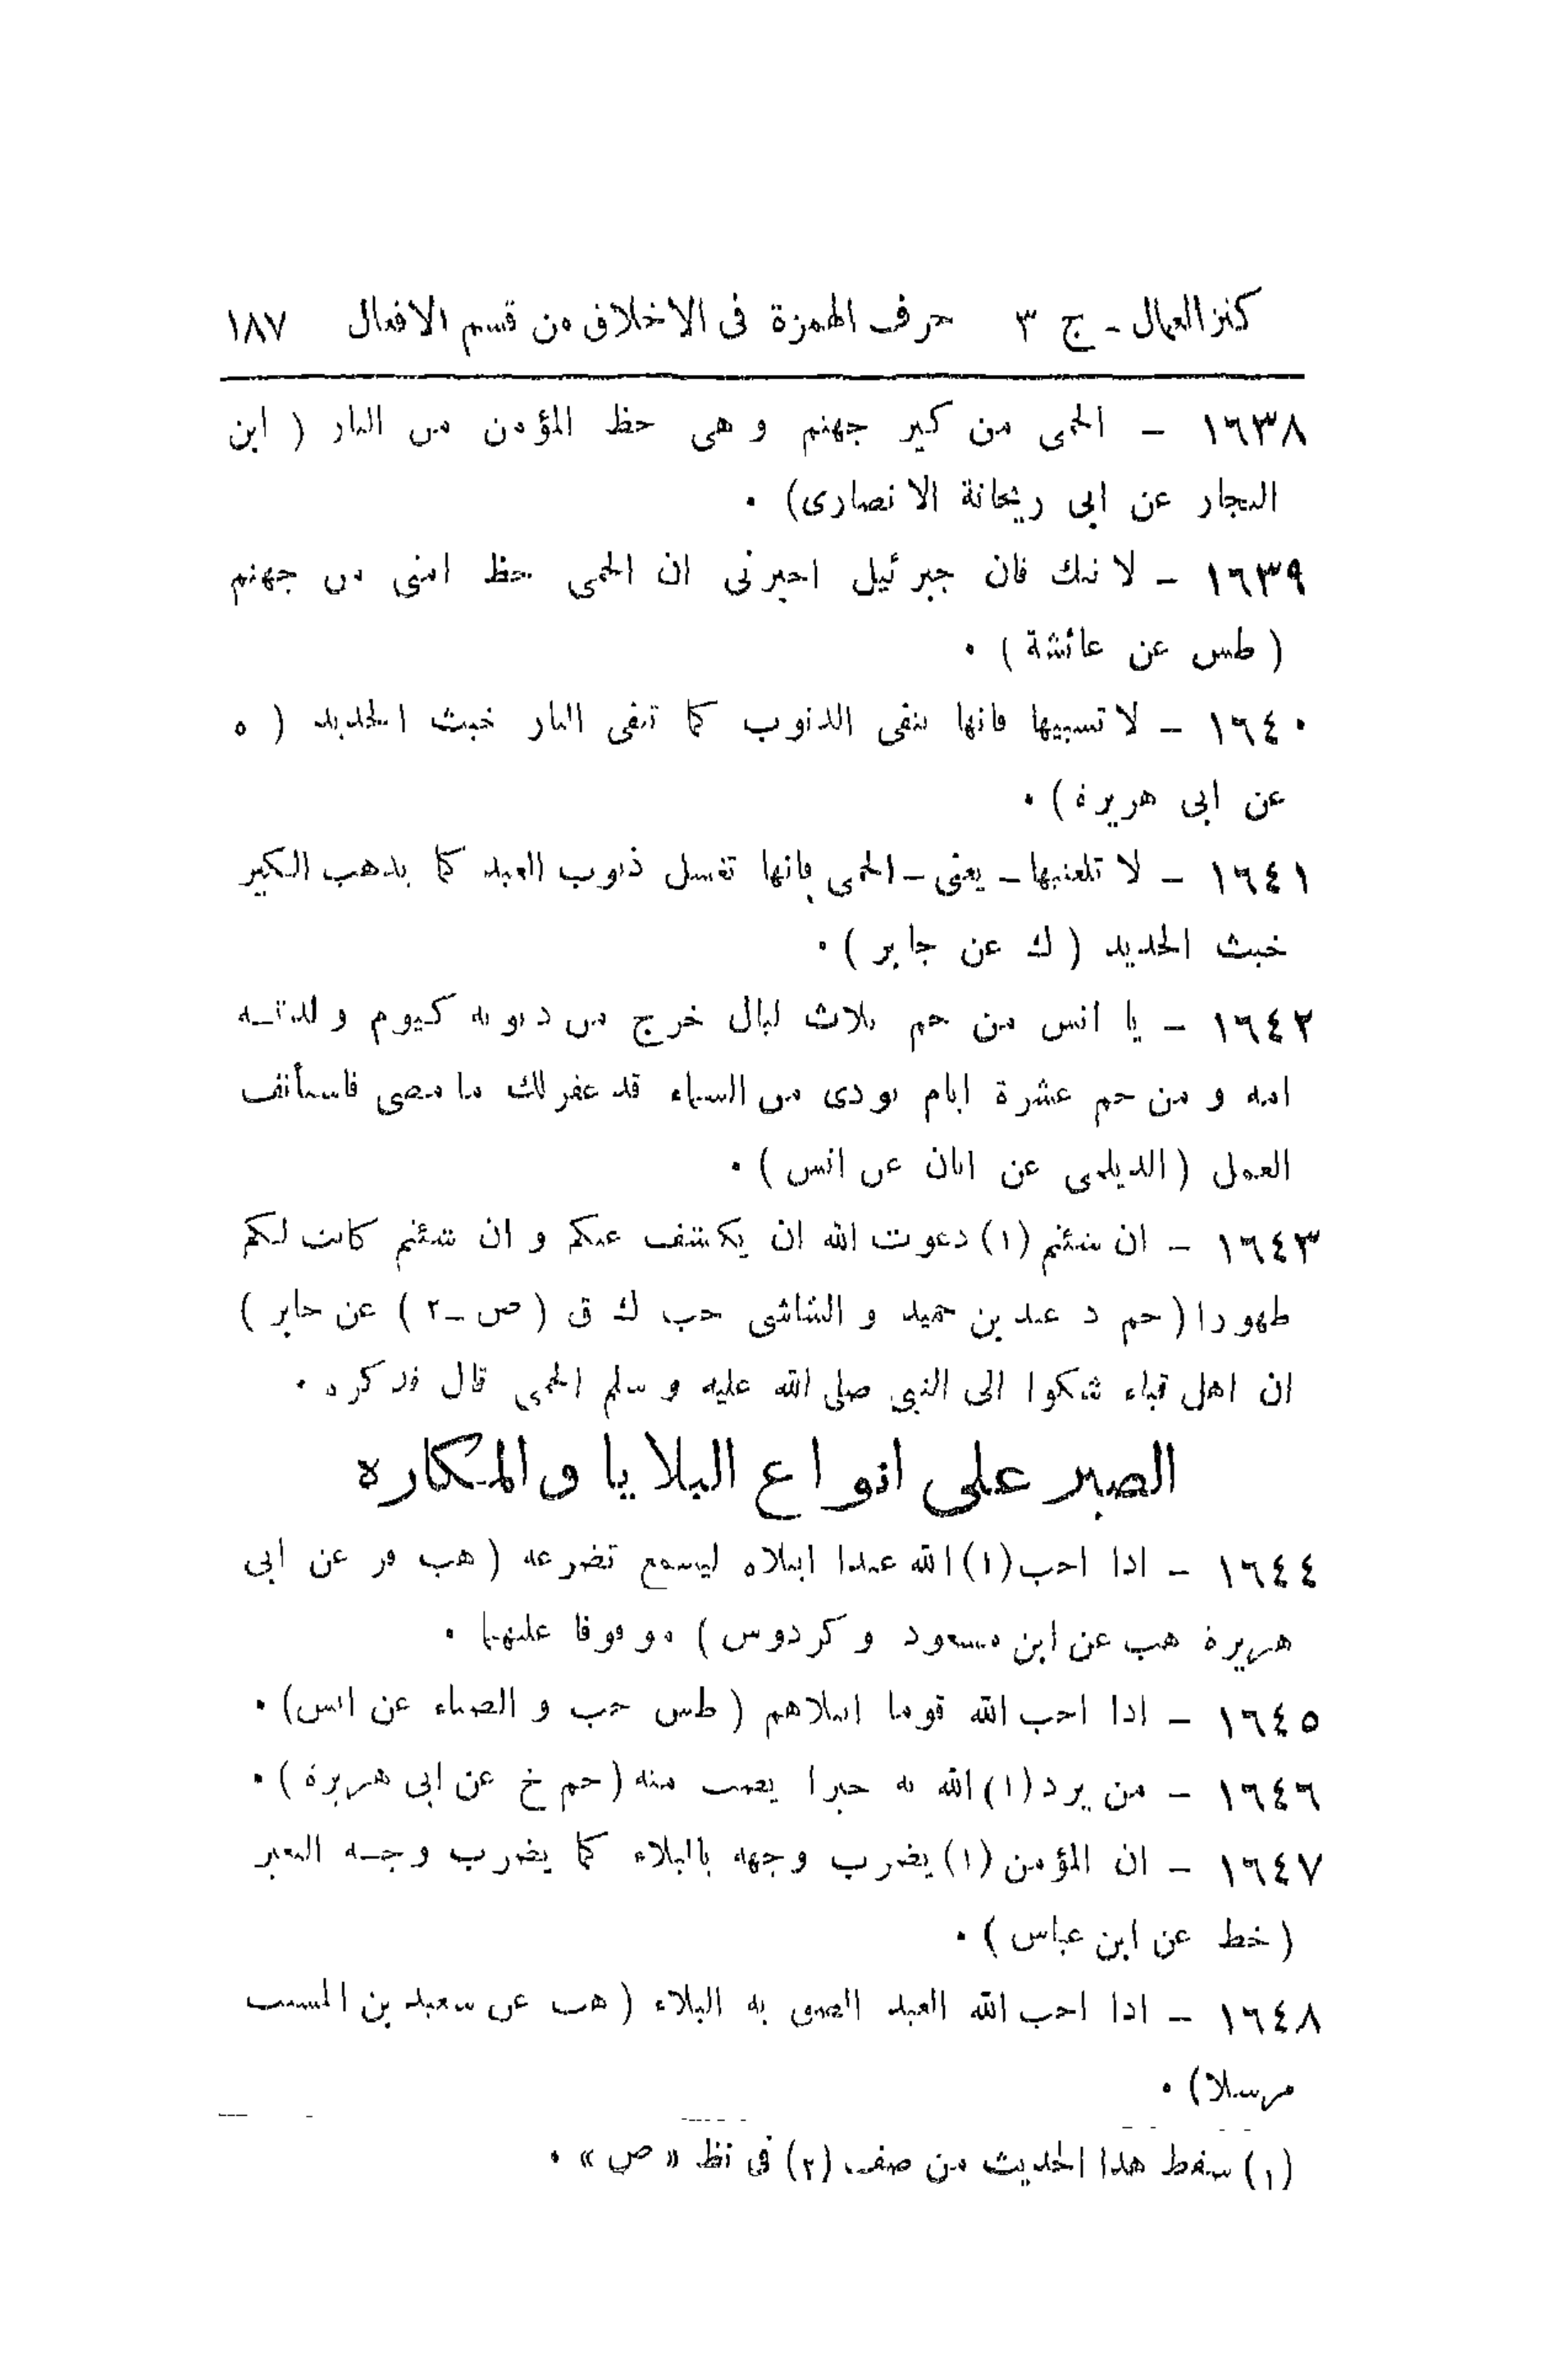 كنز العمال - ج ٣ حرف الهمزة فى الاخلاق من قسم الافعال ١٨٧
١٦٣٨ – الحمى من كير جهنم و هى حظ المؤمن من النار ( ابن
النجار عن ابى ريحانة الانصارى) ٠
١٦٣٩ – لا تبك فان جبرئيل اخبرنى ان الحمى حظ امتى من جهنم
( طس عن عائشة ) ٠
١٦٤٠ – لا تسبيها فانها تنفى الذنوب كما تنفى النار خبث الحديد ( ه
عن ابى هريرة ) ٠
١٦٤١ – لا تلعنيها – يعنى – الحمى فانها تغسل ذنوب العبد كما يذهب الكير
خبث الحديد ( ك عن جابر ) ٠
١٦٤٢ – يا انس من حم ثلاث ليال خرج من ذنوبه كيوم ولدتـه
امه و من حم عشرة ايام نودى من السماء قد غفر لك ما مضى فاستأنف
العمل ( الديلمى عن ابان عن انس ) ٠
١٦٤٣ – ان شئتم (١) دعوت الله ان يكشف عنكم و ان شئتم كانت لكم
طهورا ( حم د عبد بن حميد و الشاشى حب ك ق ( ص – ٢ ) عن جابر )
ان اهل قباء شكوا الى النبى صلى الله عليه و سلم الحمى قال فذكره ٠
الصبر على انواع البلايا والمكاره
١٦٤٤ – اذا احب (١) الله عبدا ابتلاه ليسمع تضرعه ( هب فر عن ابى
هريرة هب عن ابن مسعود و كردوس ) موقوفا عليهما ٠
١٦٤٥ – اذا احب الله قوما ابتلاهم ( طس حب و الضياء عن انس) ٠
١٦٤٦ – من يرد (١) الله به خيرا يصب منه ( حم خ عن ابى هريرة ) ٠
١٦٤٧ – ان المؤمن (١) يضرب وجهه بالبلاء كما يضرب وجـه البعير
( خط عن ابن عباس ) ٠
١٦٤٨ – اذا احب الله العبد الصق به البلاء ( هب عن سعيد بن المسيب
مرسلا) ٠
(١) سقط هذا الحديث من صف (٢) فى نظ « ص » ٠